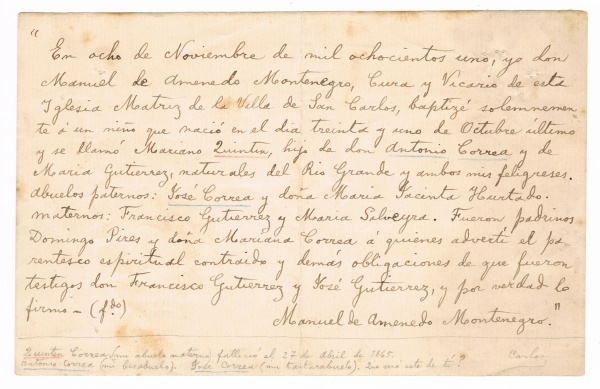 "
En ocho de Noviembre de mil ochocientos uno, yo don
Manuel de Amenedo Montenegro, Cura y Vicario de esta
Yglesia Matriz de la Villa de San Carlos, baptizé solemnemen
te á un niño que nació en el dia treinta y uno de Octubre último
y se llamó Mariano Quintin, hijo de don Antonio Correa y de
Maria Gutierrez, naturales del Rio Grande y ambos mis feligreses.
abuelos paternos: José Correa y doña Maria Jacinta Hurtado.
maternos: Francisco Gutierrez y Maria Salveyra. Fueron padrinos
Domingo Pires y doña Mariana Correa a quienes advertí el pa
rentesco espiritual contraido y demás obligaciones de que fueron
testigos don Francisco Gutierrez y José Gutierrez, y por verdad lo
firmo - (fdo)
Manuel de Amenedo Montenegro."
Quintin Correa (mi abuelo materno) falleció el 27 de Abril de 1865. Carlos
Antonio Correa (mi bisabuelo). José Correa (mi tartarabuelo). este de ti?